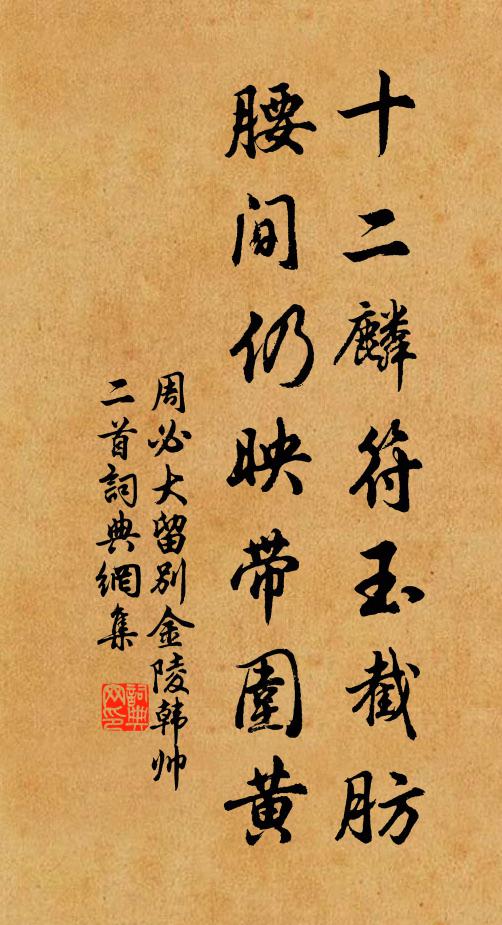 十二麟符玉截肪
腰间仍映带围黄
周必大留别金陵韩帅
二首詞典網集
詞典
网印